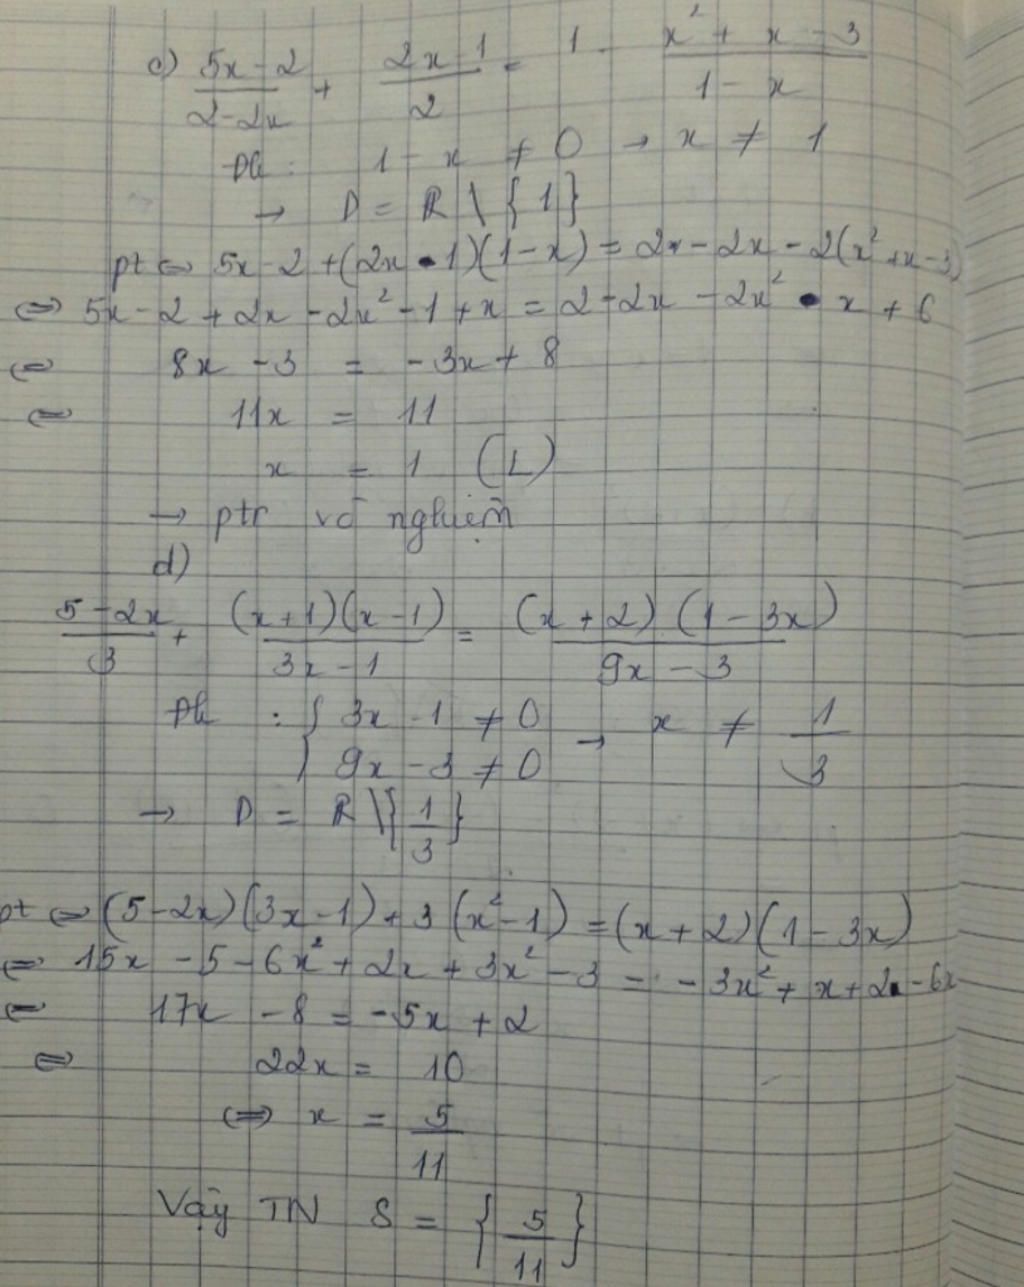 c) (5x-2)/(2-2x) + (2x-1)/2 = 1 - (x² + x - 3)/(1 - x)
Đk : 1 - x ≠ 0 → x ≠ 1
→ D = R \ {1}
pt ⇔ 5x-2 + (2x-1)(1-x) = 2 - 2x - 2(x² + x - 3)
⇔ 5x - 2 + 2x - 2x² - 1 + x = 2 - 2x - 2x² - x + 6
⇔ 8x - 3 = -3x + 8
⇔ 11x = 11
x = 1 (L)
→ ptr vô nghiệm
d)
(5-2x)/3 + (x+1)(x-1)/(3x-1) = (x+2)(1-3x)/(9x-3)
Đk : { 3x - 1 ≠ 0
9x - 3 ≠ 0 → x ≠ 1/3
→ D = R \ {1/3}
pt ⇔ (5-2x)(3x-1) + 3(x²-1) = (x+2)(1-3x)
⇔ 15x - 5 - 6x² + 2x + 3x² - 3 = -3x² + x + 2 - 6x
⇔ 17x - 8 = -5x + 2
⇔ 22x = 10
⇔ x = 5/11
Vậy TN S = {5/11}